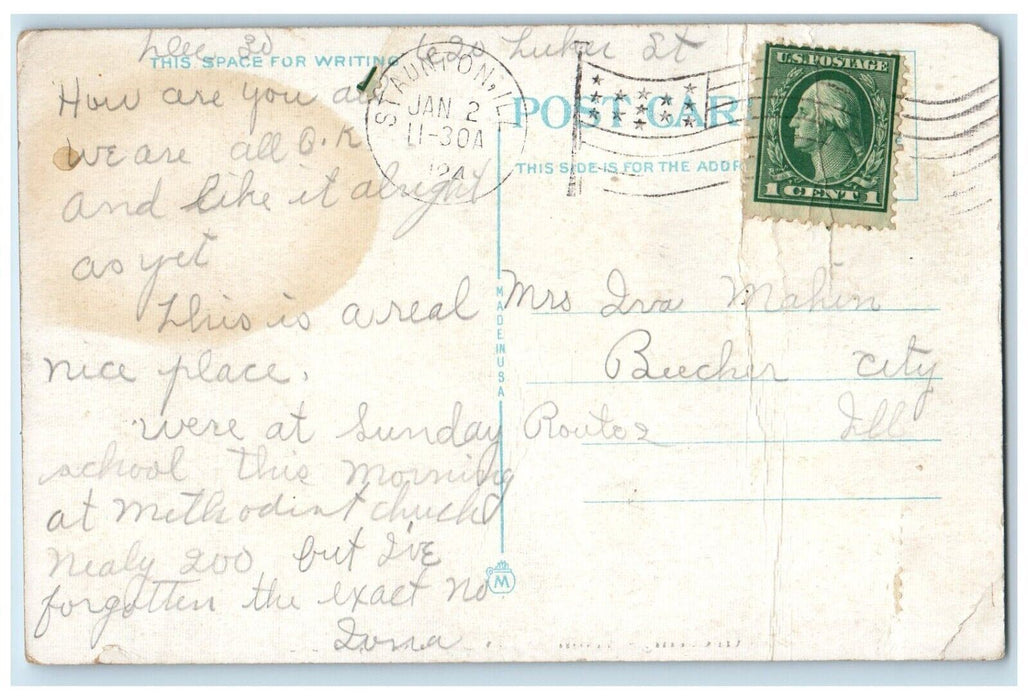 Dec 30 620 Luker St
THIS SPACE FOR WRITING
How are you all
we are all O.K.
and like it alright
as yet
This is a real
nice place.
were at Sunday
school this morning
at Methodist chuch
Nealy 200 but I've
forgotten the exact no
Iona
STAUNTON, ILL
JAN 2
11-30A
POST CAR
THIS SIDE IS FOR THE ADDR
U.S. POSTAGE
1 CENT 1
MADE IN USA
M
Mrs Iva Mahin
Beecher City
Route 2 Ill